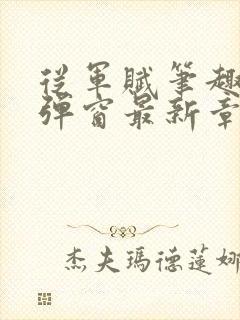 從軍賦筆趣
彈窗最新章
杰夫瑪德蓮娜